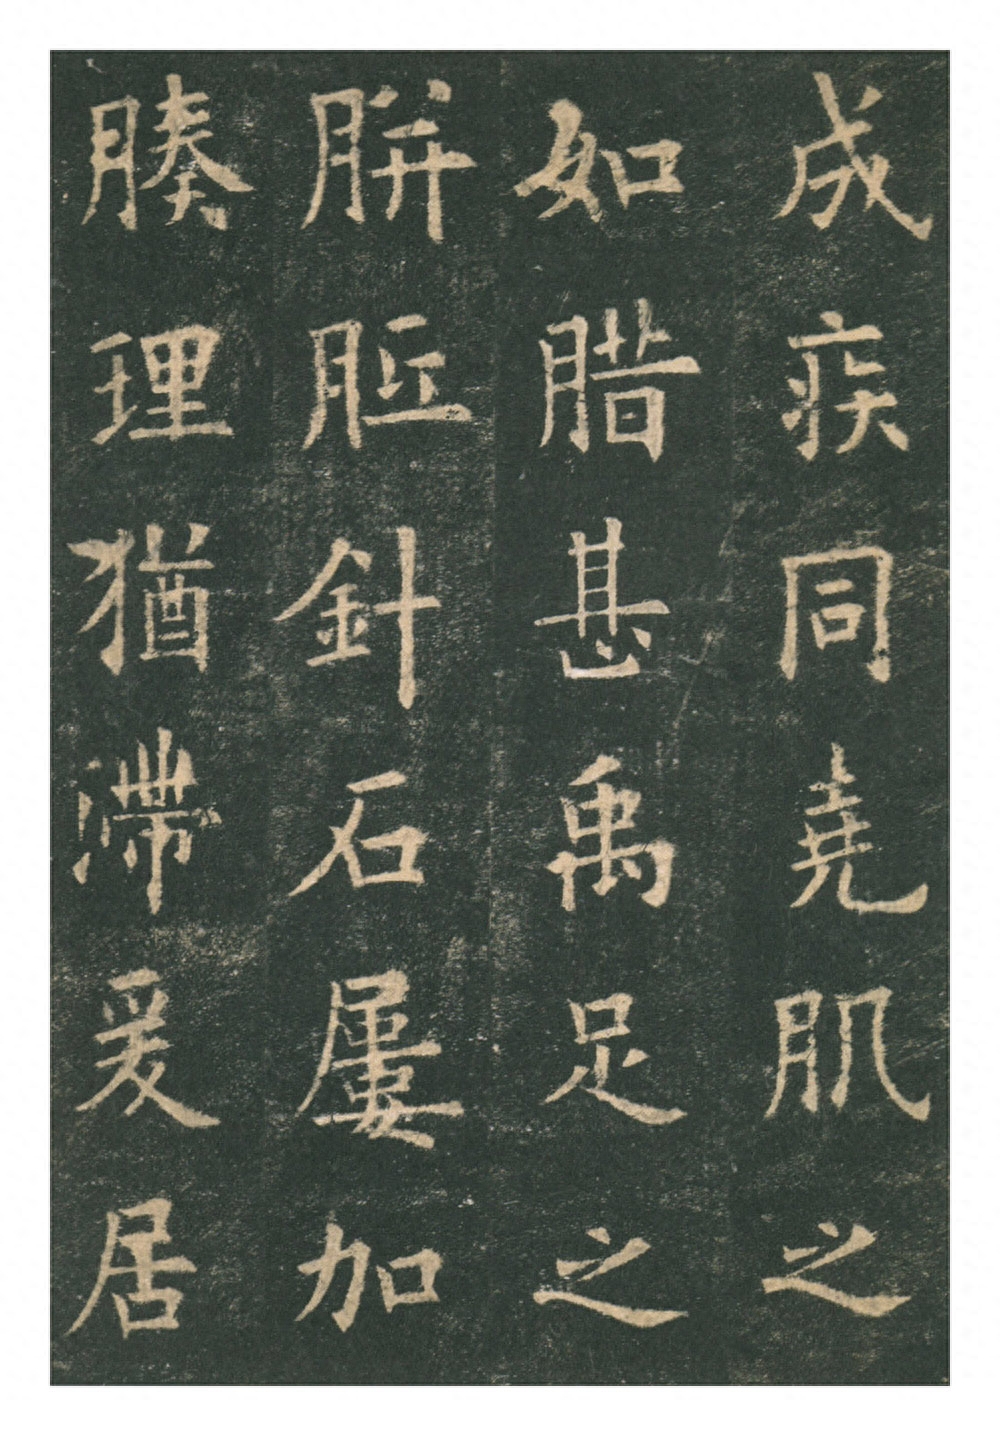 成疾同堯肌之
如腊甚禹足之
胼胝針石屢加
腠理猶滯爰居